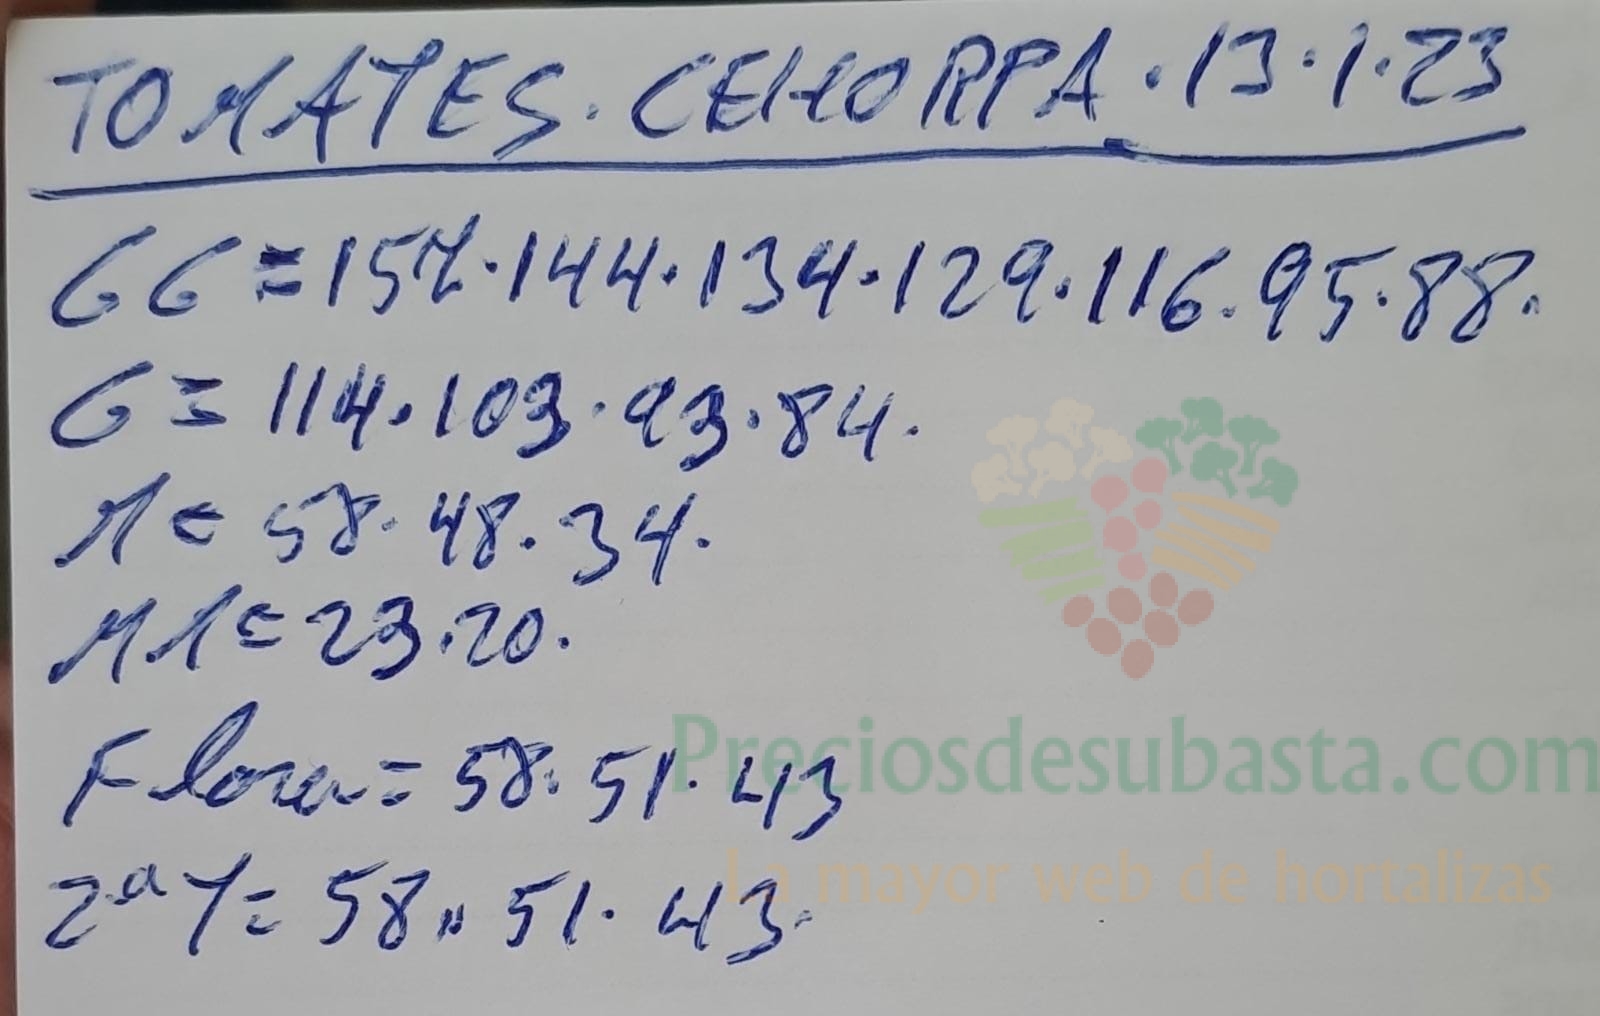 TOMATES. CEHORPA. 13.1.23
GG = 157.144.134.129.116.95.88.
G = 114.103.93.84.
M = 58.48.34.
MM = 23.20.
Flores = 58.51.43
2ª Y = 58.51.43.
Preciosdesubasta.com
La mayor web de hortalizas